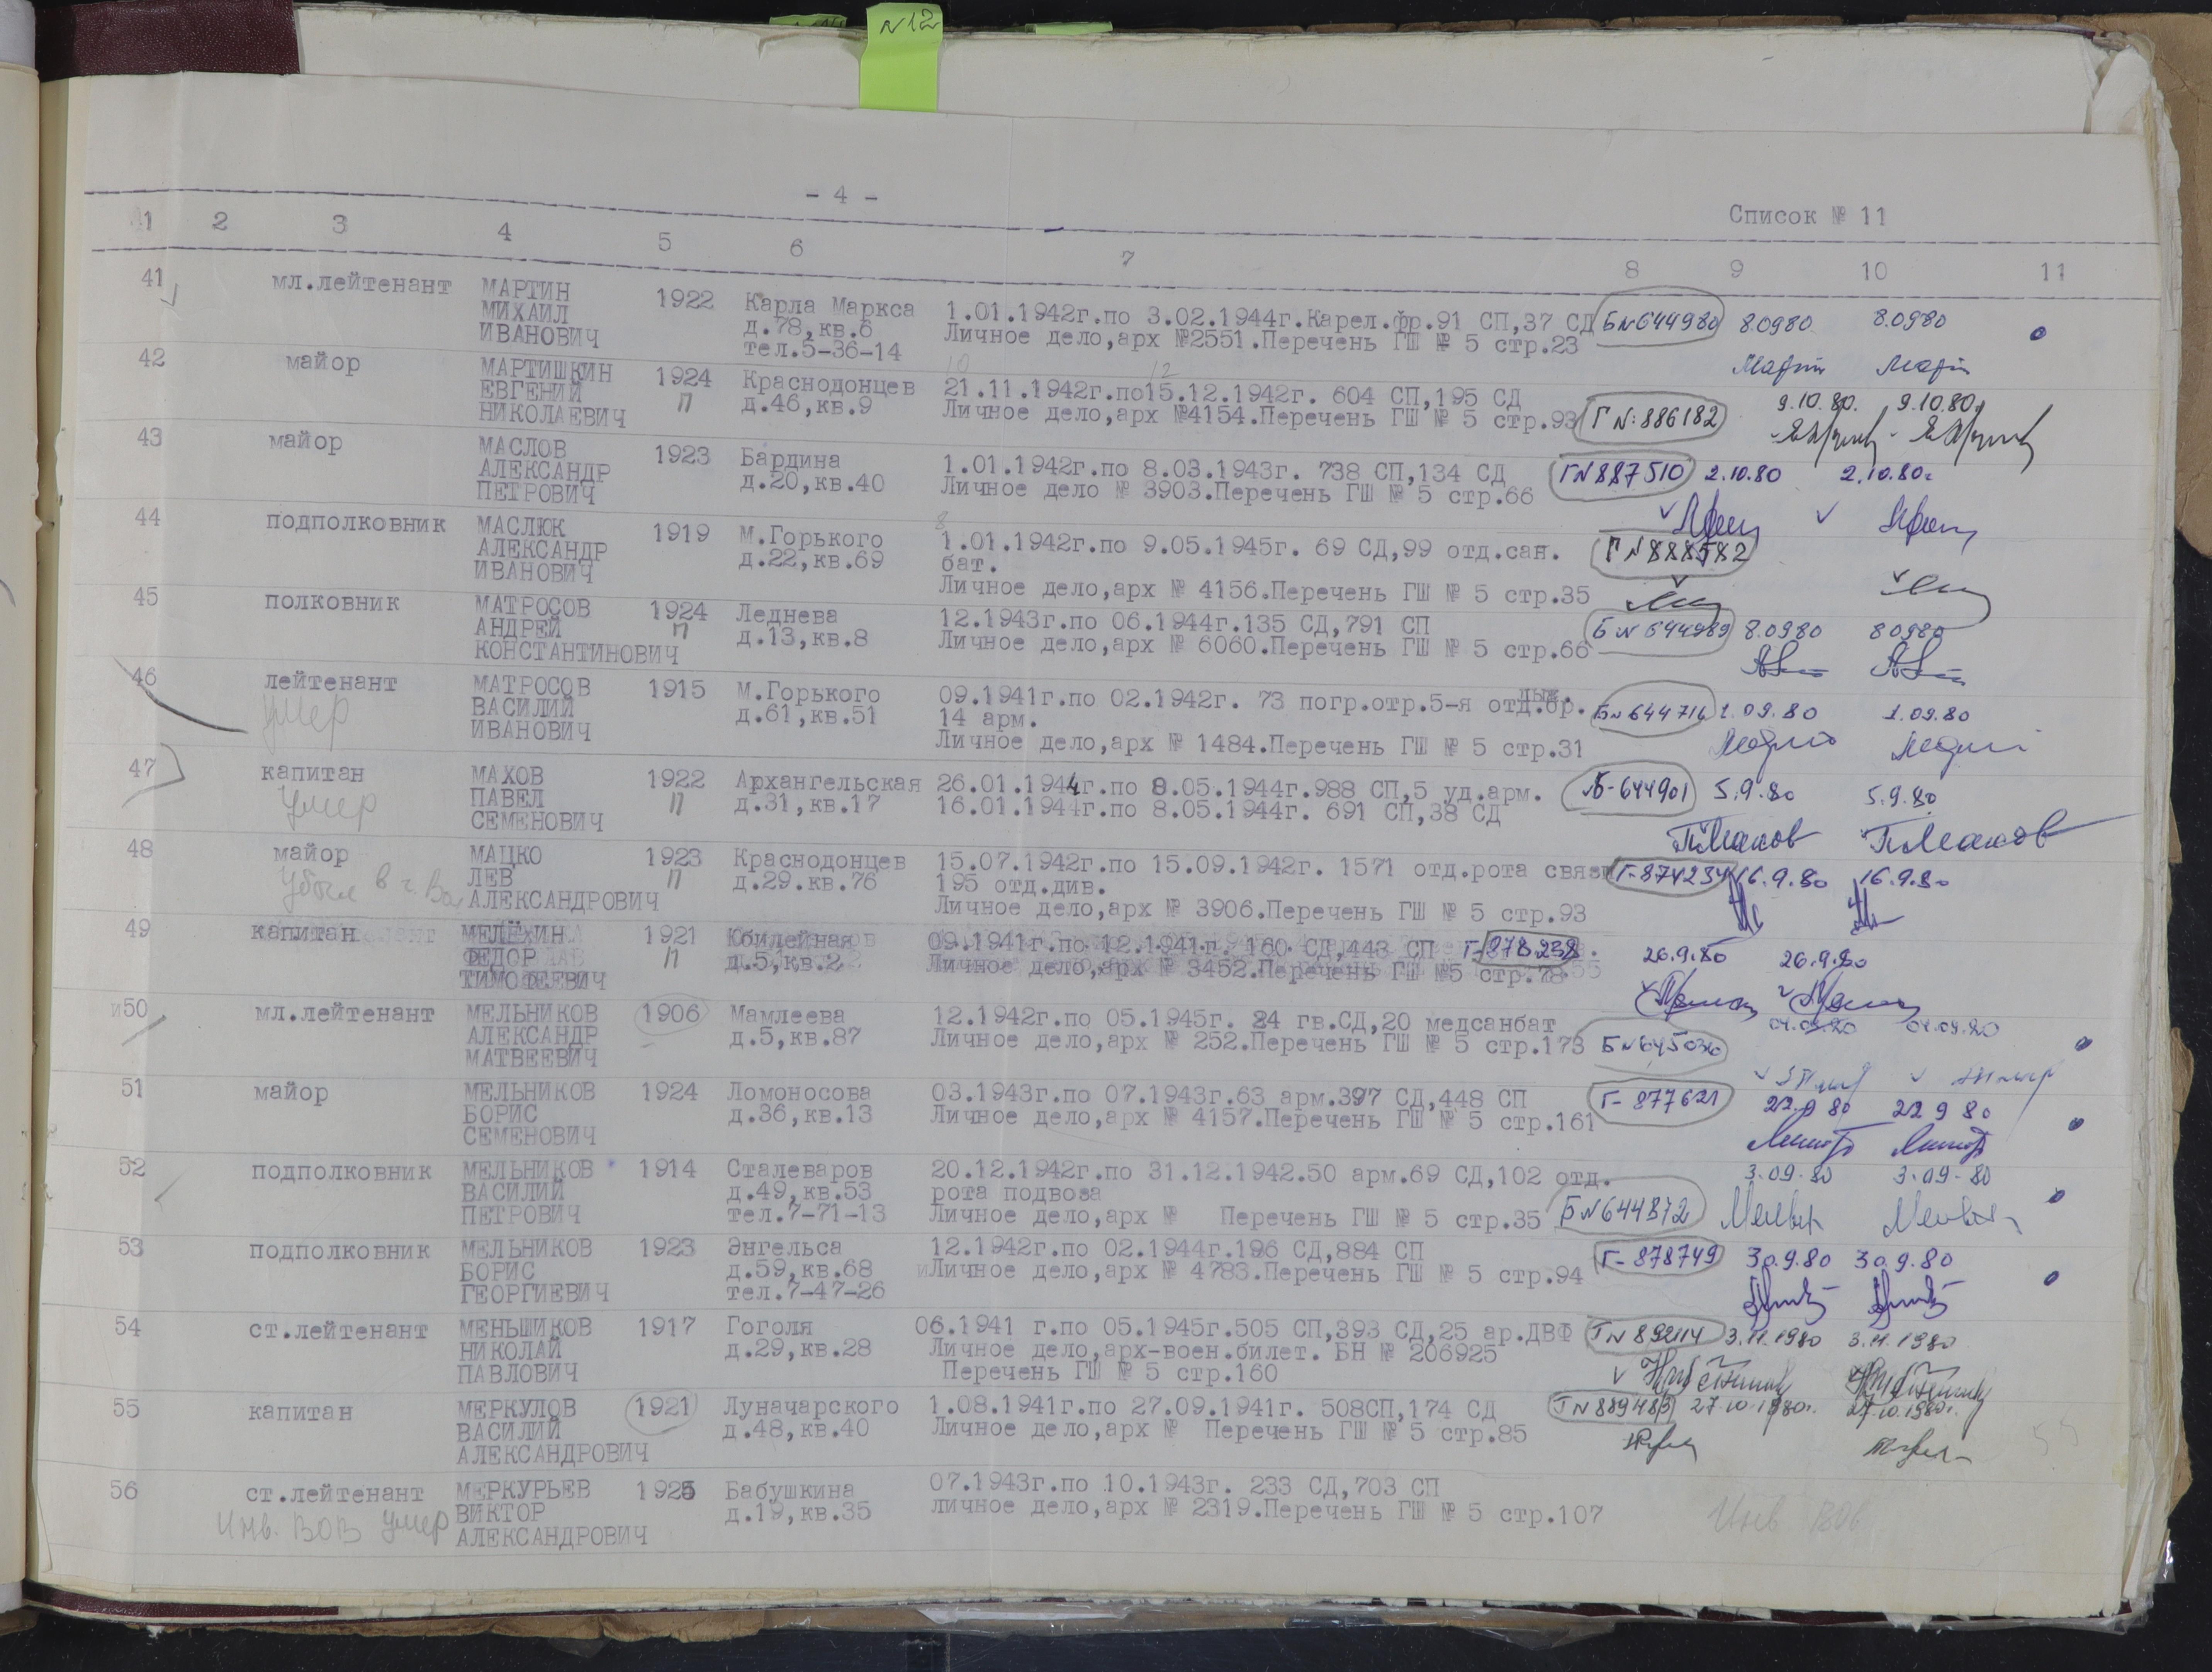 N12
- 4 -
Список № 11
41 2 3 4 5 6 7 8 9 10 11
41 мл.лейтенант МАРТИН 1922 Карла Маркса 1.01.1942г.по 3.02.1944г.Карел.фр.91 СП,37 СД БN644980 8.0980 8.0980
МИХАИЛ д.78,кв.6 Личное дело,арх №2551.Перечень ГШ № 5 стр.23
ИВАНОВИЧ тел.5-36-14
42 майор МАРТИШКИН 1924 Краснодонцев 21.11.1942г.по15.12.1942г. 604 СП,195 СД 9.10.80. 9.10.80.
10 12
ЕВГЕНИЙ П д.46,кв.9 Личное дело,арх №4154.Перечень ГШ № 5 стр.93 Г N:886182
НИКОЛАЕВИЧ
43 майор МАСЛОВ 1923 Бардина 1.01.1942г.по 8.03.1943г. 738 СП,134 СД ГN887510 2.10.80 2.10.80г
АЛЕКСАНДР д.20,кв.40 Личное дело № 3903.Перечень ГШ № 5 стр.66
ПЕТРОВИЧ
44 подполковник МАСЛЮК 1919 М.Горького 1.01.1942г.по 9.05.1945г. 69 СД,99 отд.сан. ГN888582
8
АЛЕКСАНДР д.22,кв.69 бат.
ИВАНОВИЧ Личное дело,арх № 4156.Перечень ГШ № 5 стр.35
45 полковник МАТРОСОВ 1924 Леднева 12.1943г.по 06.1944г.135 СД,791 СП БN644989 8.0980 80980
АНДРЕЙ П д.13,кв.8 Личное дело,арх № 6060.Перечень ГШ № 5 стр.66
КОНСТАНТИНОВИЧ
46 лейтенант МАТРОСОВ 1915 М.Горького 09.1941г.по 02.1942г. 73 погр.отр.5-я отд.бр. БN644716 1.09.80 1.09.80
лыж.
умер ВАСИЛИЙ д.61,кв.51 14 арм.
ИВАНОВИЧ Личное дело,арх № 1484.Перечень ГШ № 5 стр.31
47 капитан МАХОВ 1922 Архангельская 26.01.1944г.по 8.05.1944г.988 СП,5 уд.арм. Б-644901 5.9.80 5.9.80
умер ПАВЕЛ П д.31,кв.17 16.01.1944г.по 8.05.1944г. 691 СП,38 СД
СЕМЕНОВИЧ П.Махов П.Махов
48 майор МАЦКО 1923 Краснодонцев 15.07.1942г.по 15.09.1942г. 1571 отд.рота связи Г-874234 16.9.80 16.9.80
Убыл в г. ЛЕВ П д.29.кв.76 195 отд.див.
АЛЕКСАНДРОВИЧ Личное дело,арх № 3906.Перечень ГШ № 5 стр.93
49 капитан МЕЛЁХИН 1921 Юбилейная 09.1941г.по 12.1941г. 160 СД,443 СП Г-878238 26.9.80 26.9.80
ФЕДОР П д.5,кв.2 Личное дело,арх № 3452.Перечень ГШ №5 стр.78
ТИМОФЕЕВИЧ
и50 мл.лейтенант МЕЛЬНИКОВ 1906 Мамлеева 12.1942г.по 05.1945г. 24 гв.СД,20 медсанбат
АЛЕКСАНДР д.5,кв.87 Личное дело,арх № 252.Перечень ГШ № 5 стр.173
МАТВЕЕВИЧ
51 майор МЕЛЬНИКОВ 1924 Ломоносова 03.1943г.по 07.1943г.63 арм.397 СД,448 СП Г- 877621 22.9 80 22 9 80
БОРИС д.36,кв.13 Личное дело,арх № 4157.Перечень ГШ № 5 стр.161
СЕМЕНОВИЧ
52 подполковник МЕЛЬНИКОВ 1914 Сталеваров 20.12.1942г.по 31.12.1942.50 арм.69 СД,102 отд. 3.09.80 3.09-80
ВАСИЛИЙ д.49,кв.53 рота подвоза
ПЕТРОВИЧ тел.7-71-13 Личное дело,арх № Перечень ГШ № 5 стр.35 БN644872
53 подполковник МЕЛЬНИКОВ 1923 Энгельса 12.1942г.по 02.1944г.196 СД,884 СП Г- 878749 30.9.80 30.9.80
БОРИС д.59,кв.68 иЛичное дело,арх № 4783.Перечень ГШ № 5 стр.94
ГЕОРГИЕВИЧ тел.7-47-26
54 ст.лейтенант МЕНЬШИКОВ 1917 Гоголя 06.1941 г.по 05.1945г.505 СП,393 СД,25 ар.ДВФ ГN892114 3.11.1980 3.11.1980
НИКОЛАЙ д.29,кв.28 Личное дело,арх-воен.билет. БН № 206925
ПАВЛОВИЧ Перечень ГШ № 5 стр.160
55 капитан МЕРКУЛОВ 1921 Луначарского 1.08.1941г.по 27.09.1941г. 508СП,174 СД ГN889483 27.10.1980г. 27.10.1980г.
ВАСИЛИЙ д.48,кв.40 Личное дело,арх № Перечень ГШ № 5 стр.85
АЛЕКСАНДРОВИЧ
56 ст.лейтенант МЕРКУРЬЕВ 1925 Бабушкина 07.1943г.по 10.1943г. 233 СД,703 СП
Инв. ВОВ умер ВИКТОР д.19,кв.35 личное дело,арх № 2319.Перечень ГШ № 5 стр.107
АЛЕКСАНДРОВИЧ